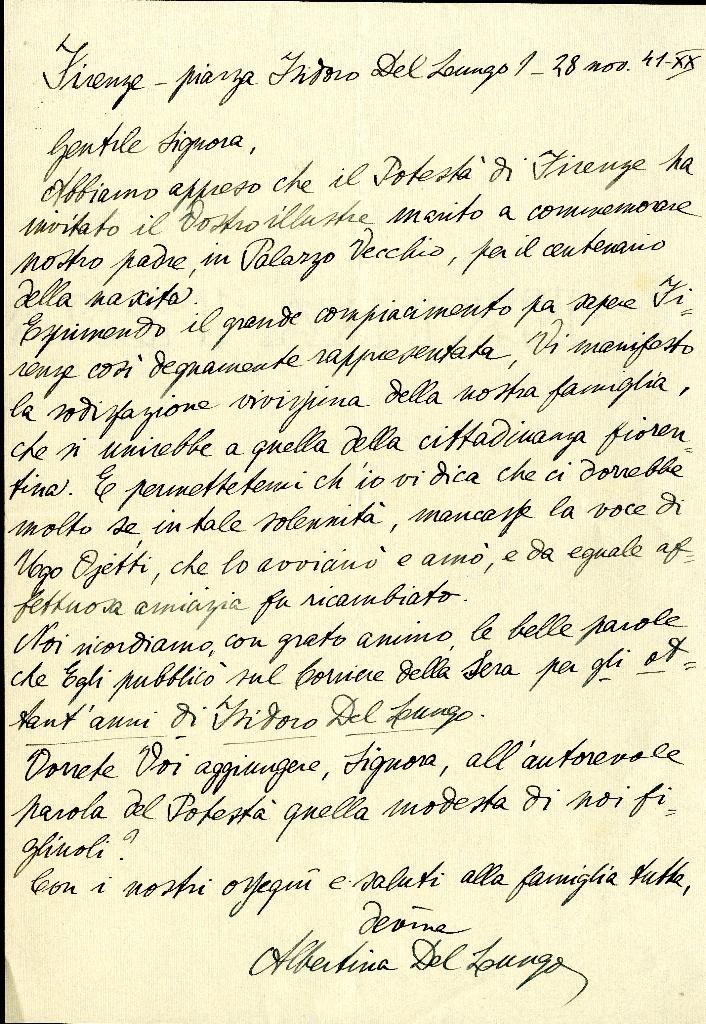 Firenze - piazza Isidoro Del Lungo 1 - 28 nov. 41-XX
Gentile Signora,
Abbiamo appreso che il Potestà di Firenze ha
invitato il Vostro illustre marito a commemorare
nostro padre, in Palazzo Vecchio, per il centenario
della nascita.
Esprimendo il grande compiacimento pa sapere Fi-
renze così degnamente rappresentata, Vi manifesto
la sodisfazione vivissima della nostra famiglia,
che si unirebbe a quella della cittadinanza fioren-
tina. E permettetemi ch'io vi dica che ci dorrebbe
molto se, in tale solennità, mancasse la voce di
Ugo Ojetti, che lo avvicinò e amò, e da eguale af-
fettuosa amicizia fu ricambiato.
Noi ricordiamo, con grato animo, le belle parole
che Egli pubblicò sul Corriere della Sera per gli ot-
tant'anni di Isidoro Del Lungo.
Vorrete Voi aggiungere, Signora, all'autorevole
parola del Potestà quella modesta di noi fi-
gliuoli?
Con i nostri ossequi e saluti alla famiglia tutta,
dev.ma
Albertina Del Lungo